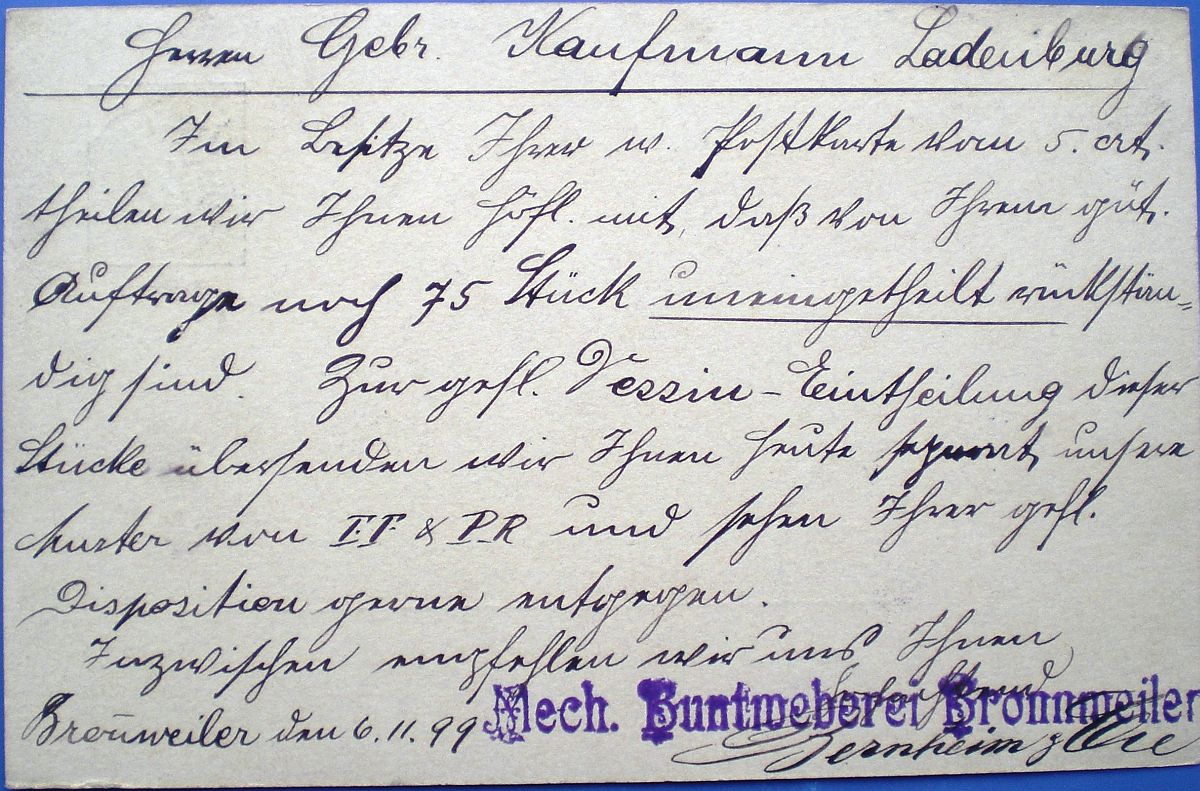 Herren Gebr. Kaufmann Ladenburg
Im Besitze Ihrer w. Postkarte vom 5. crt.
theilen wir Ihnen höfl. mit, daß von Ihrem güt.
Auftrage noch 75 Stück uneingetheilt rückstän-
dig sind. Zur gefl. Dessin-Eintheilung dieser
Stücke übersenden wir Ihnen heute separat unsere
Muster von FF & PR und sehen Ihrer gefl.
Disposition gerne entgegen.
Inzwischen empfehlen wir uns Ihnen
Hochachtend
Bronweiler den 6.11.99 Mech. Buntweberei Bronnweiler
Bernheim & Cie